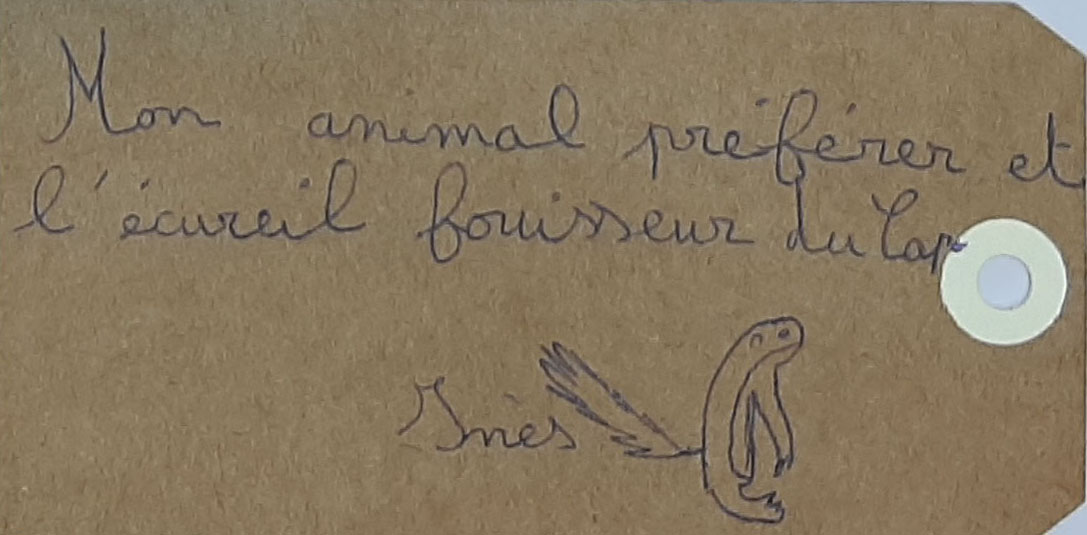 Mon animal préférer et
l'écureil fouisseur du Cap
Inès